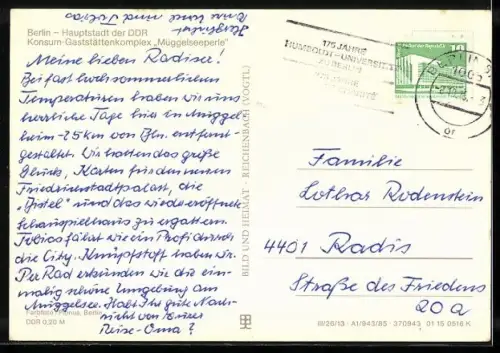 Herzlichst
Eure Uwe und Tobias
Berlin – Hauptstadt der DDR
Konsum-Gaststättenkomplex „Müggelseeperle“
Meine lieben Radiser!
Bei fast hochsommerlichen
Temperaturen haben wir uns
herrliche Tage hier in Müggel-
heim - 25 km von Bln. entfernt -
gestaltet. Wir hatten das große
Glück, Karten für den neuen
Friedrichstadtpalast, die
„Distel“ und das wiedereröffnete
Schauspielhaus zu ergattern.
Tobias fährt wie ein Profi durch
die City. Knüpfstoff haben wir.
Per Rad erkunden wir die ein-
malig schöne Umgebung am
Müggelsee. Habt Ihr gute Nach-
richt von Eurer
Reise-Oma?
Farbfoto: Berlin
DDR 0,20 M
BILD UND HEIMAT REICHENBACH (VOGTL)
175 JAHRE
HUMBOLDT-UNIVERSITÄT
ZU BERLIN
275 JAHRE
CHARITÉ
10
BERLIN
1085
Familie
Lothar Rodenstein
4401 Radis
Straße des Friedens
20a
III/26/13 A1/843/85 370943 01 15 0516 K